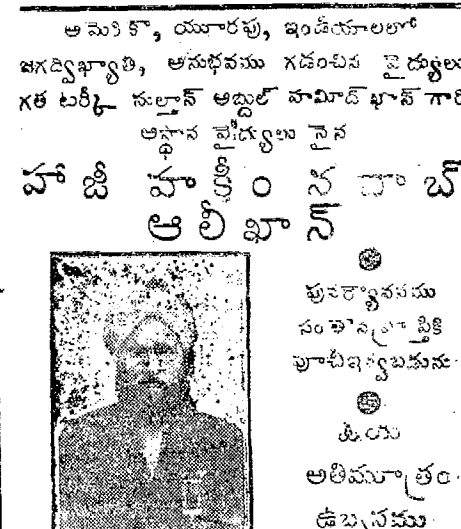 అమెరికా, యూరపు, ఇండియాలలో
జగద్విఖ్యాతి, అనుభవము గడించిన వైద్యులు
గత టర్కీ సుల్తాన్ అబ్దుల్ హమీద్ ఖాన్ గారి
ఆస్థాన వైద్యులు నైన
హాజీ హకీం నవాబ్
ఆలీఖాన్
పునర్యౌవనము
సంతానప్రాప్తికి
పూచీఇవ్వబడును
క్షయ
అతిమూత్రం
ఉబ్బసము